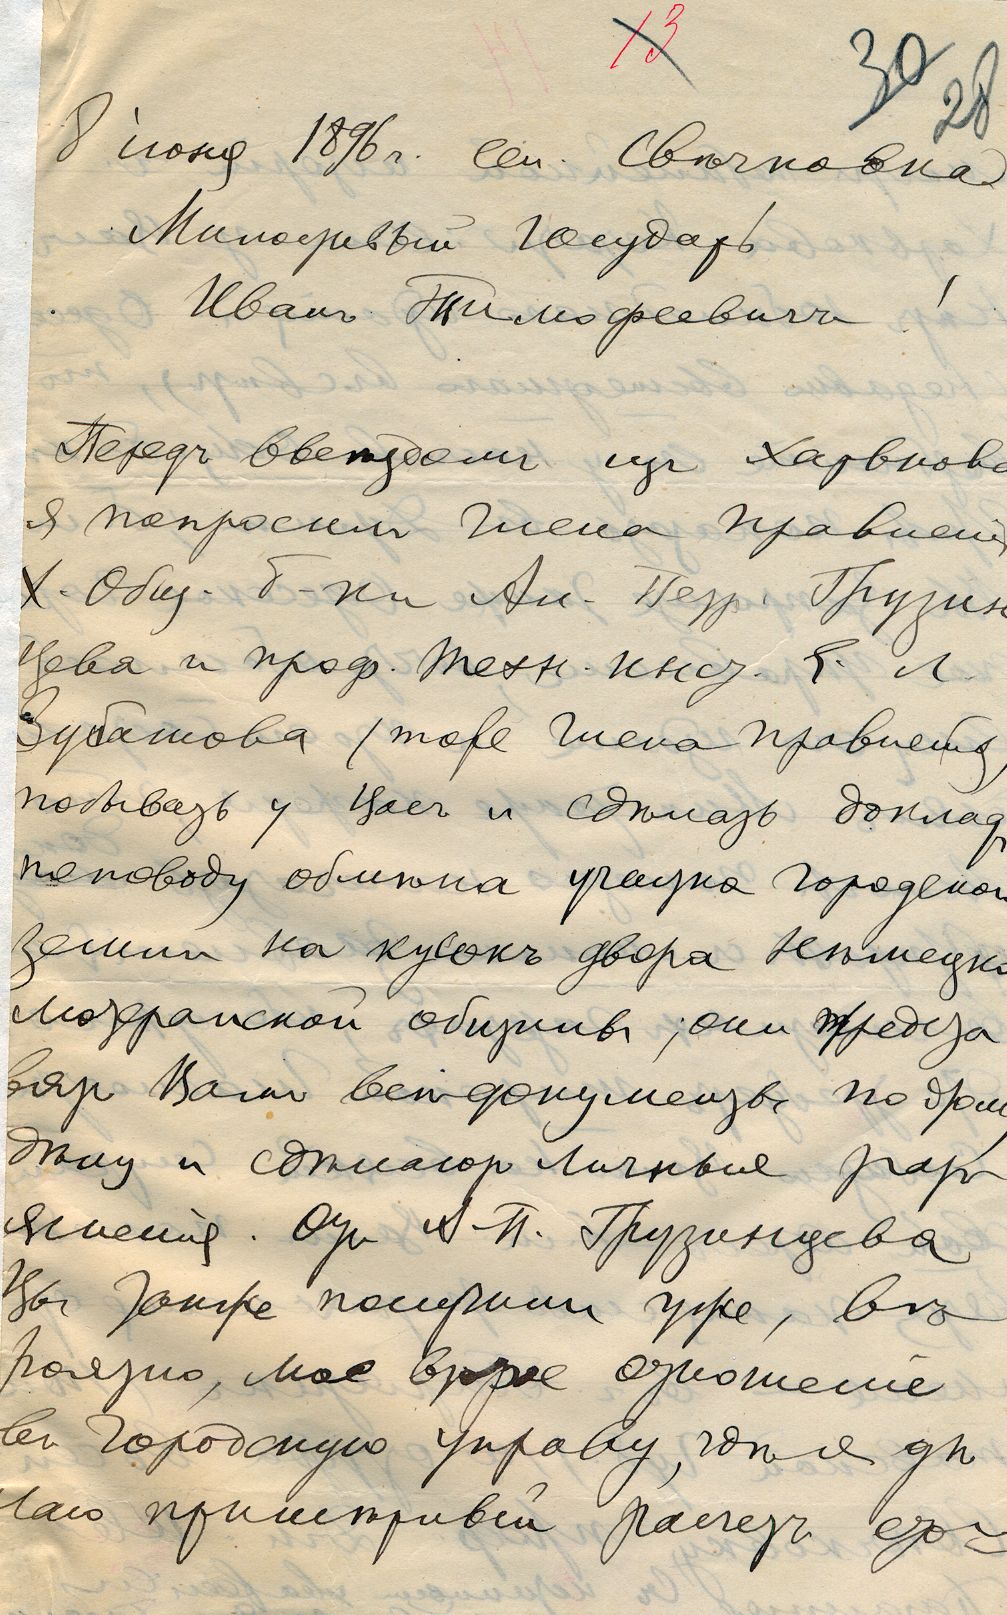 13
30
28
8 іюня 1896 г. сел. Свѣчковка
Милостивый Государь
Иванъ Тимофеевичъ!
Передъ выѣздомъ изъ Харькова
я попросилъ члена правленія
Х. Общ. б-ки Ал. Петр. Грузин
цева и проф. Техн. инст. Е. Л.
Зубашова /тоже члена правленія/
побывать у Васъ и сдѣлать докладъ
по поводу обмѣна участка городской
земли на кусокъ двора Нѣмецко
лютеранской общины; они предста
вятъ Вамъ всѣ документы по этому
дѣлу и сдѣлаютъ личныя разъ
ясненія. Отъ А. П. Грузинцева
Вы также получили уже, вѣ
роятно, мое второе отношеніе
въ Городскую Управу, гдѣ я дѣ
лаю примѣрный расчетъ сто